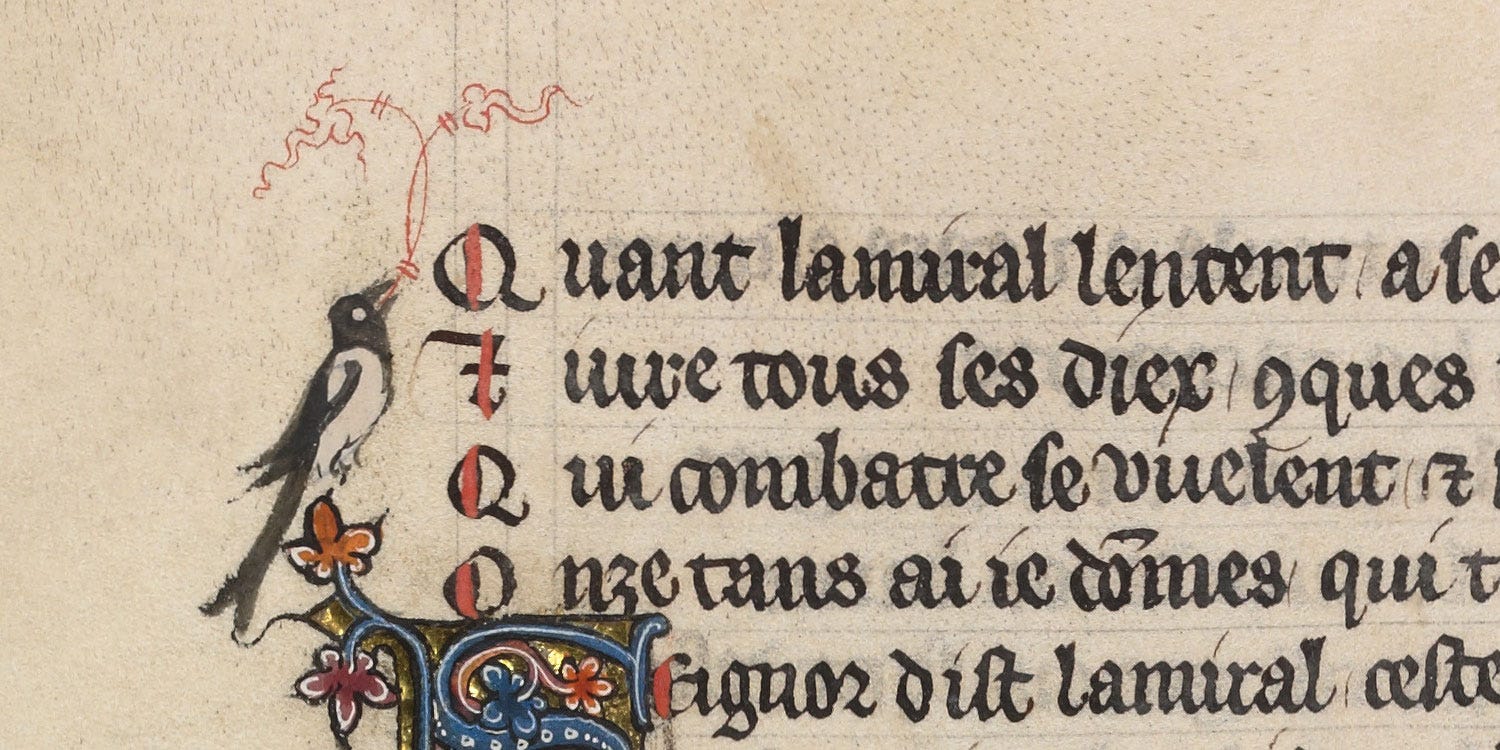 Quant lamiral lentent / a se
⁊ iure tous ses diex / ꝯques
Qui combatre se vuelent / ⁊
Onze tans ai ie dōmes qui t
Signor dist lamiral / ceste